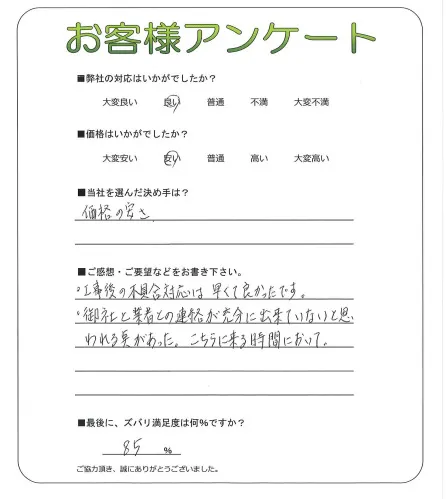 お客様アンケート
■弊社の対応はいかがでしたか？
大変良い 良い 普通 不満 大変不満
■価格はいかがでしたか？
大変安い 安い 普通 高い 大変高い
■当社を選んだ決め手は？
価格の安さ
■ご感想・ご要望などをお書き下さい。
・工事後の不具合対応は早くて良かったです。
・御社と業者との連絡が充分に出来ていないと思
われる点があった。こちらに来る時間において。
■最後に、ズバリ満足度は何％ですか？
85 %
ご協力頂き、誠にありがとうございました。